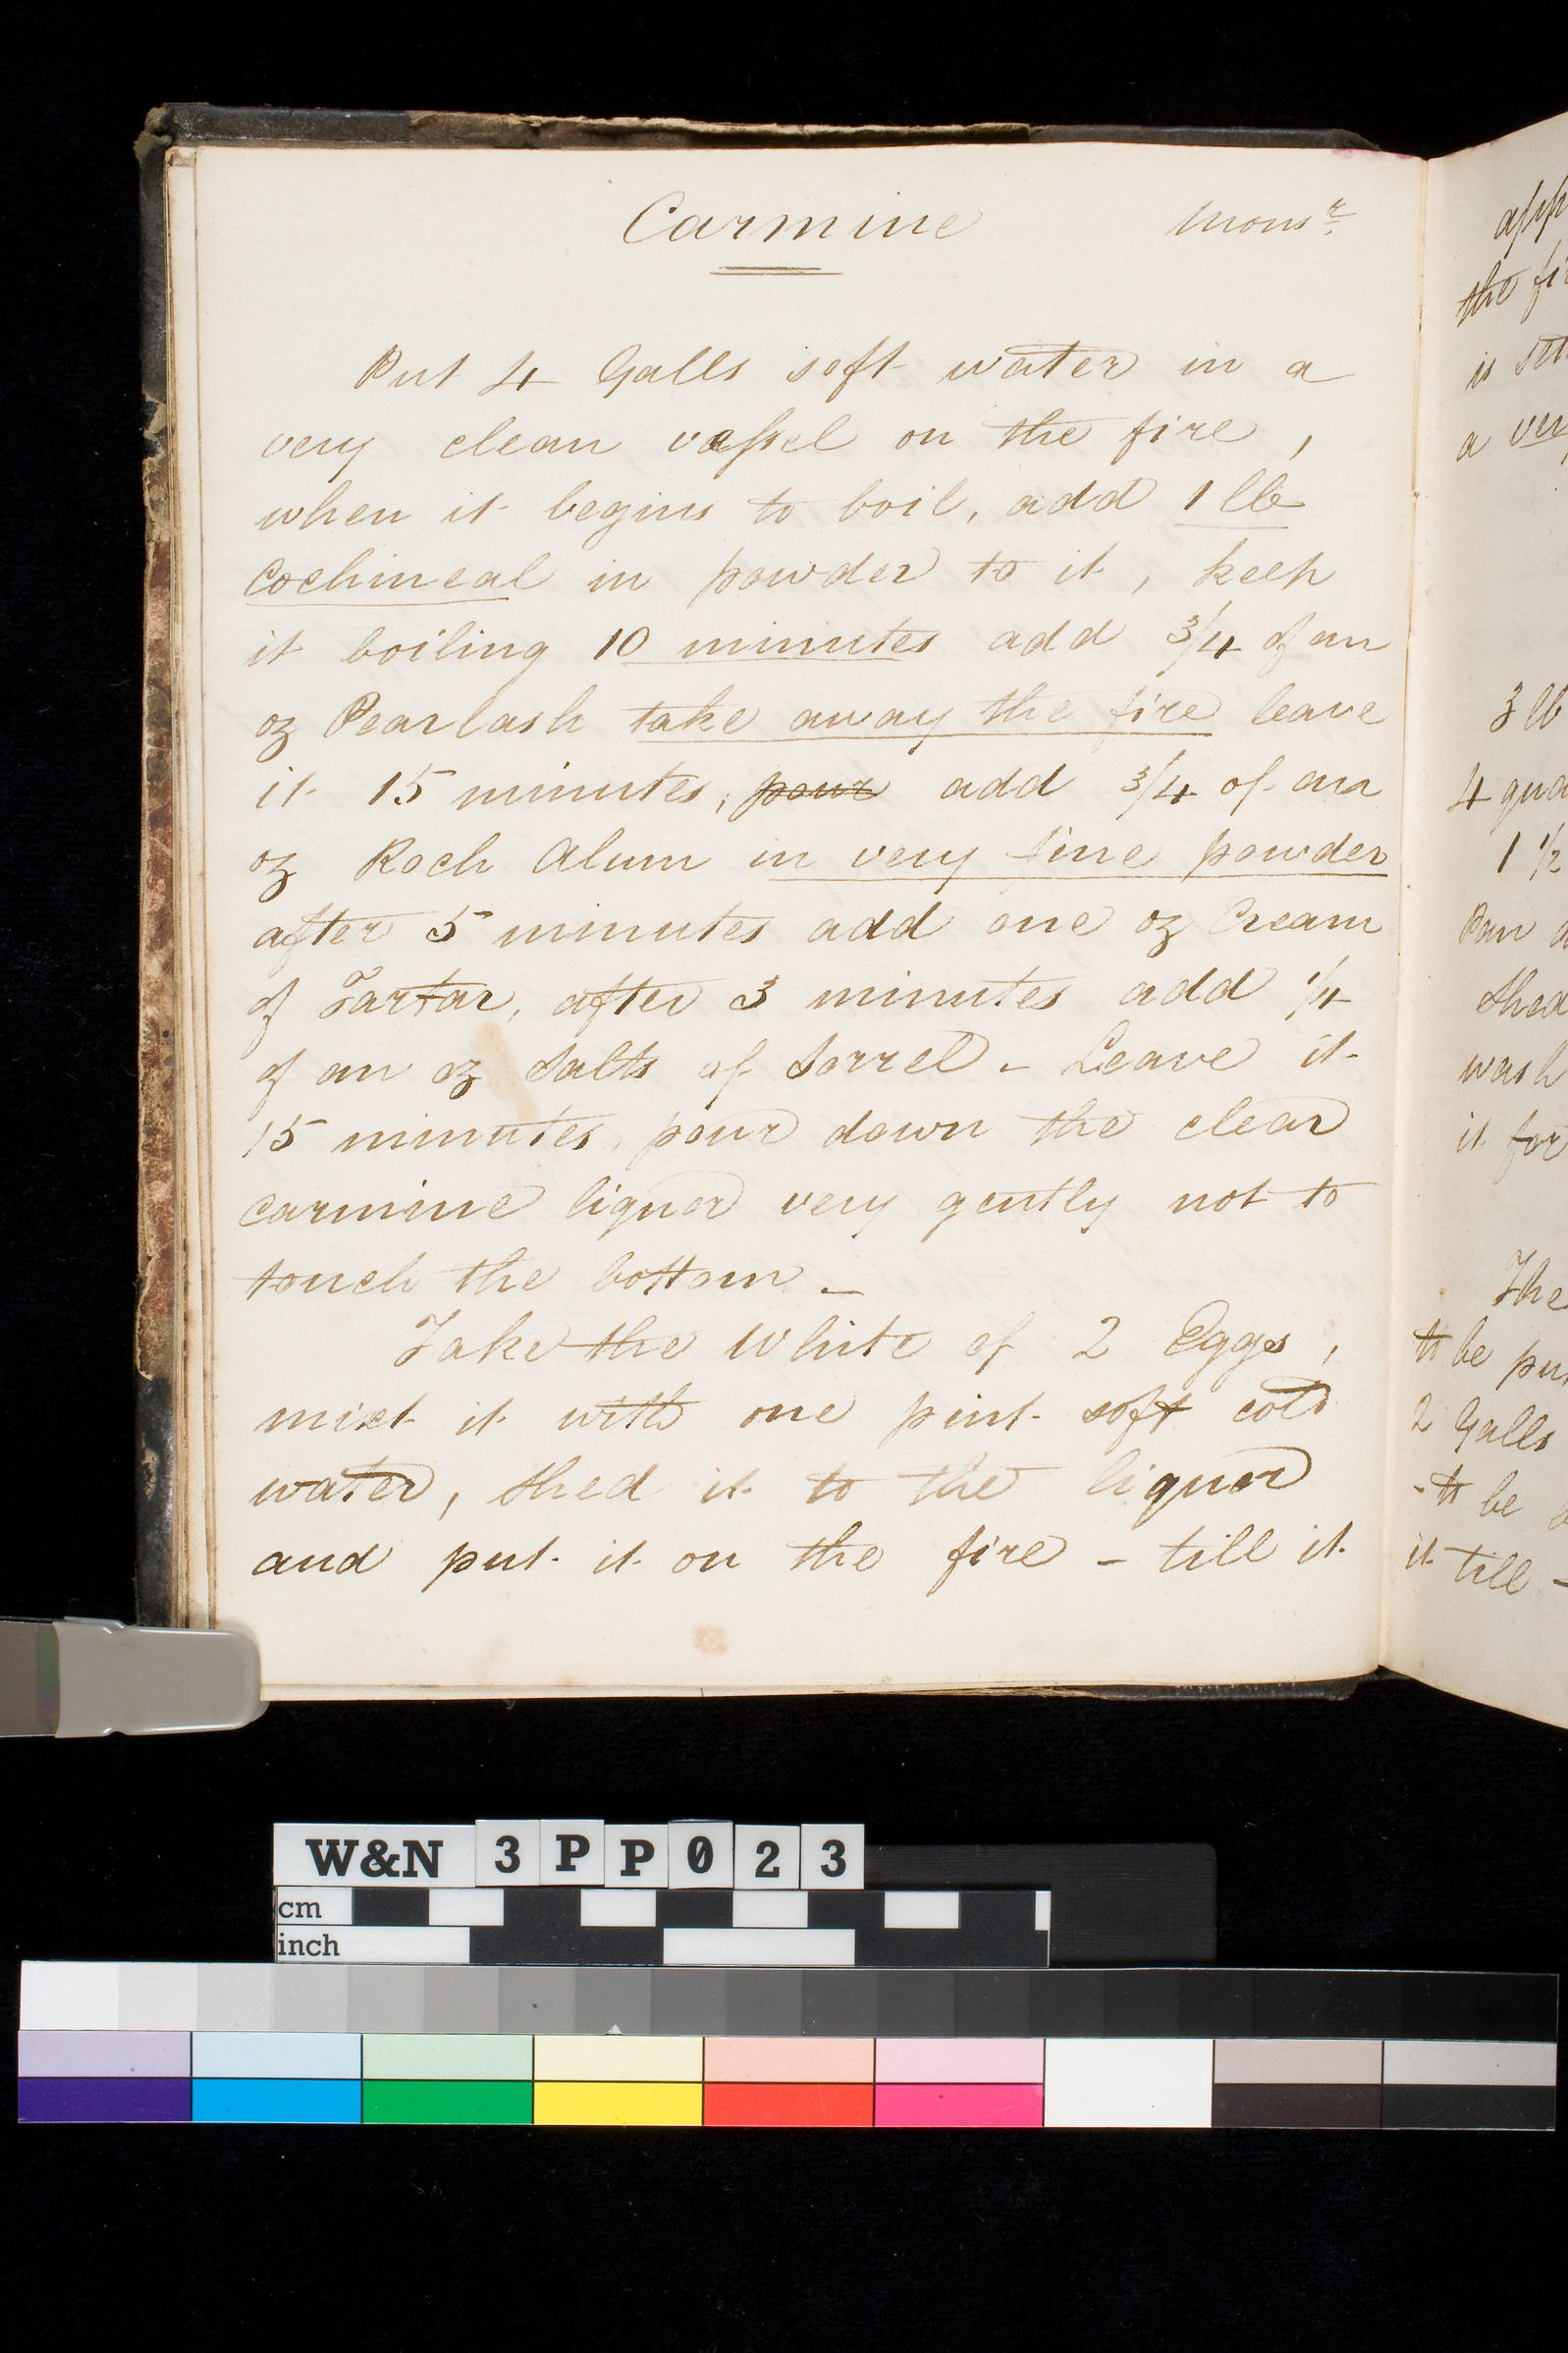 Carmine Monsr.
Put 4 Galls soft water in a
very clean vessel on the fire,
when it begins to boil, add 1 lb
Cochineal in powder to it, keep
it boiling 10 minutes add 3/4 of an
oz Pearlash take away the fire leave
it 15 minutes, pour add 3/4 of an
oz Roch Alum in very fine powder
after 5 minutes add one oz Cream
of Tartar, after 3 minutes add 1/4
of an oz Salts of Sorrel - Leave it
15 minutes, pour down the clear
carmine liquor very gently not to
touch the bottom -
Take the White of 2 Eggs,
mixt it with one pint soft cold
water, shed it to the liquor
and put it on the fire - till it
app
the fi
is
a ver
3 lb
4 qua
1 1/2
Pan
shed
wash
it for
The
to be pu
2 Galls
- to be
it till -
W&N 3PP023
cm
inch